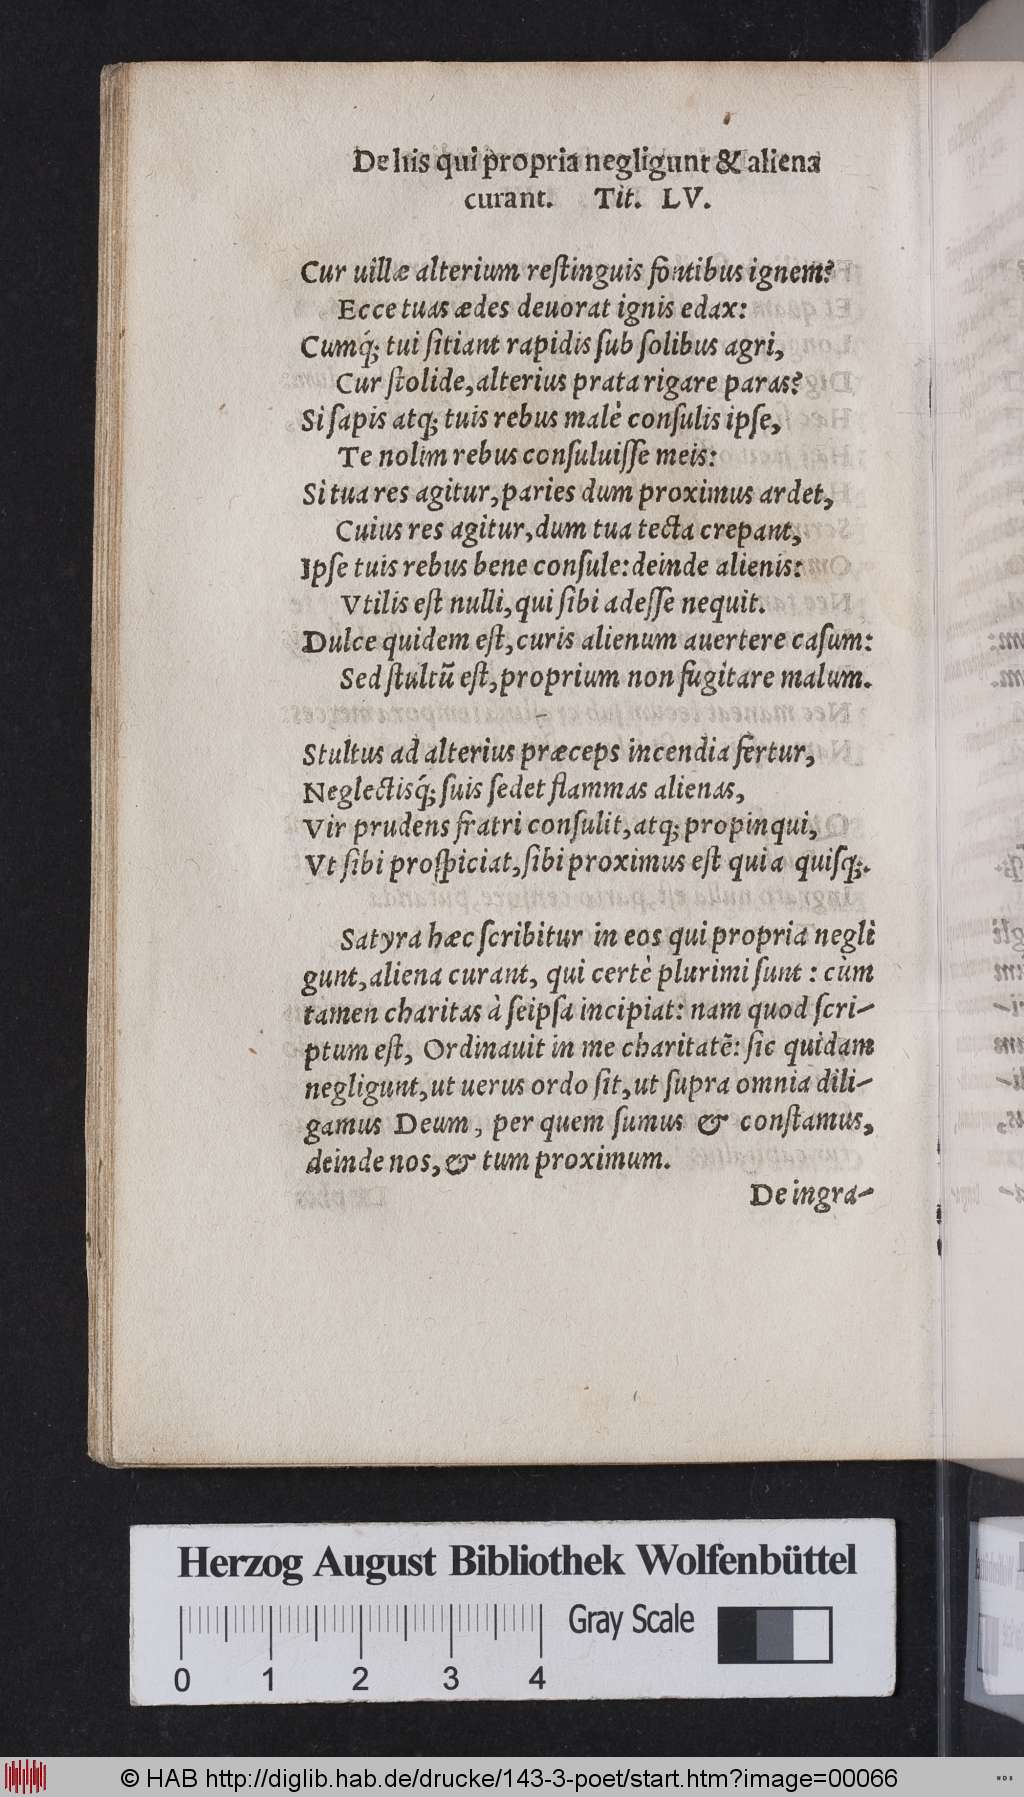 De his qui propria negligunt & aliena
curant. Tit. LV.
Cur uillæ alterium reſtinguis fontibus ignem?
Ecce tuas ædes deuorat ignis edax:
Cumq́; tui ſitiant rapidis ſub ſolibus agri,
Cur ſtolide, alterius prata rigare paras?
Si ſapis atq; tuis rebus malè conſulis ipſe,
Te nolim rebus conſuluiſſe meis:
Si tua res agitur, paries dum proximus ardet,
Cuius res agitur, dum tua tecta crepant,
Ipſe tuis rebus bene conſule: deinde alienis:
Vtilis eſt nulli, qui ſibi adeſſe nequit.
Dulce quidem eſt, curis alienum auertere caſum:
Sed ſtultũ eſt, proprium non fugitare malum.
Stultus ad alterius præceps incendia fertur,
Neglectisq́; ſuis ſedet flammas alienas,
Vir prudens fratri conſulit, atq; propinqui,
Vt ſibi proſpiciat, ſibi proximus eſt quia quiſq;.
Satyra hæc ſcribitur in eos qui propria negli
gunt, aliena curant, qui certè plurimi ſunt : cùm
tamen charitas à ſeipſa incipiat: nam quod ſcri-
ptum eſt, Ordinauit in me charitatẽ: ſic quidam
negligunt, ut uerus ordo ſit, ut ſupra omnia dili-
gamus Deum, per quem ſumus & conſtamus,
deinde nos, & tum proximum.
De ingra-
Herzog August Bibliothek Wolfenbüttel
Gray Scale
0 1 2 3 4
© HAB http://diglib.hab.de/drucke/143-3-poet/start.htm?image=00066